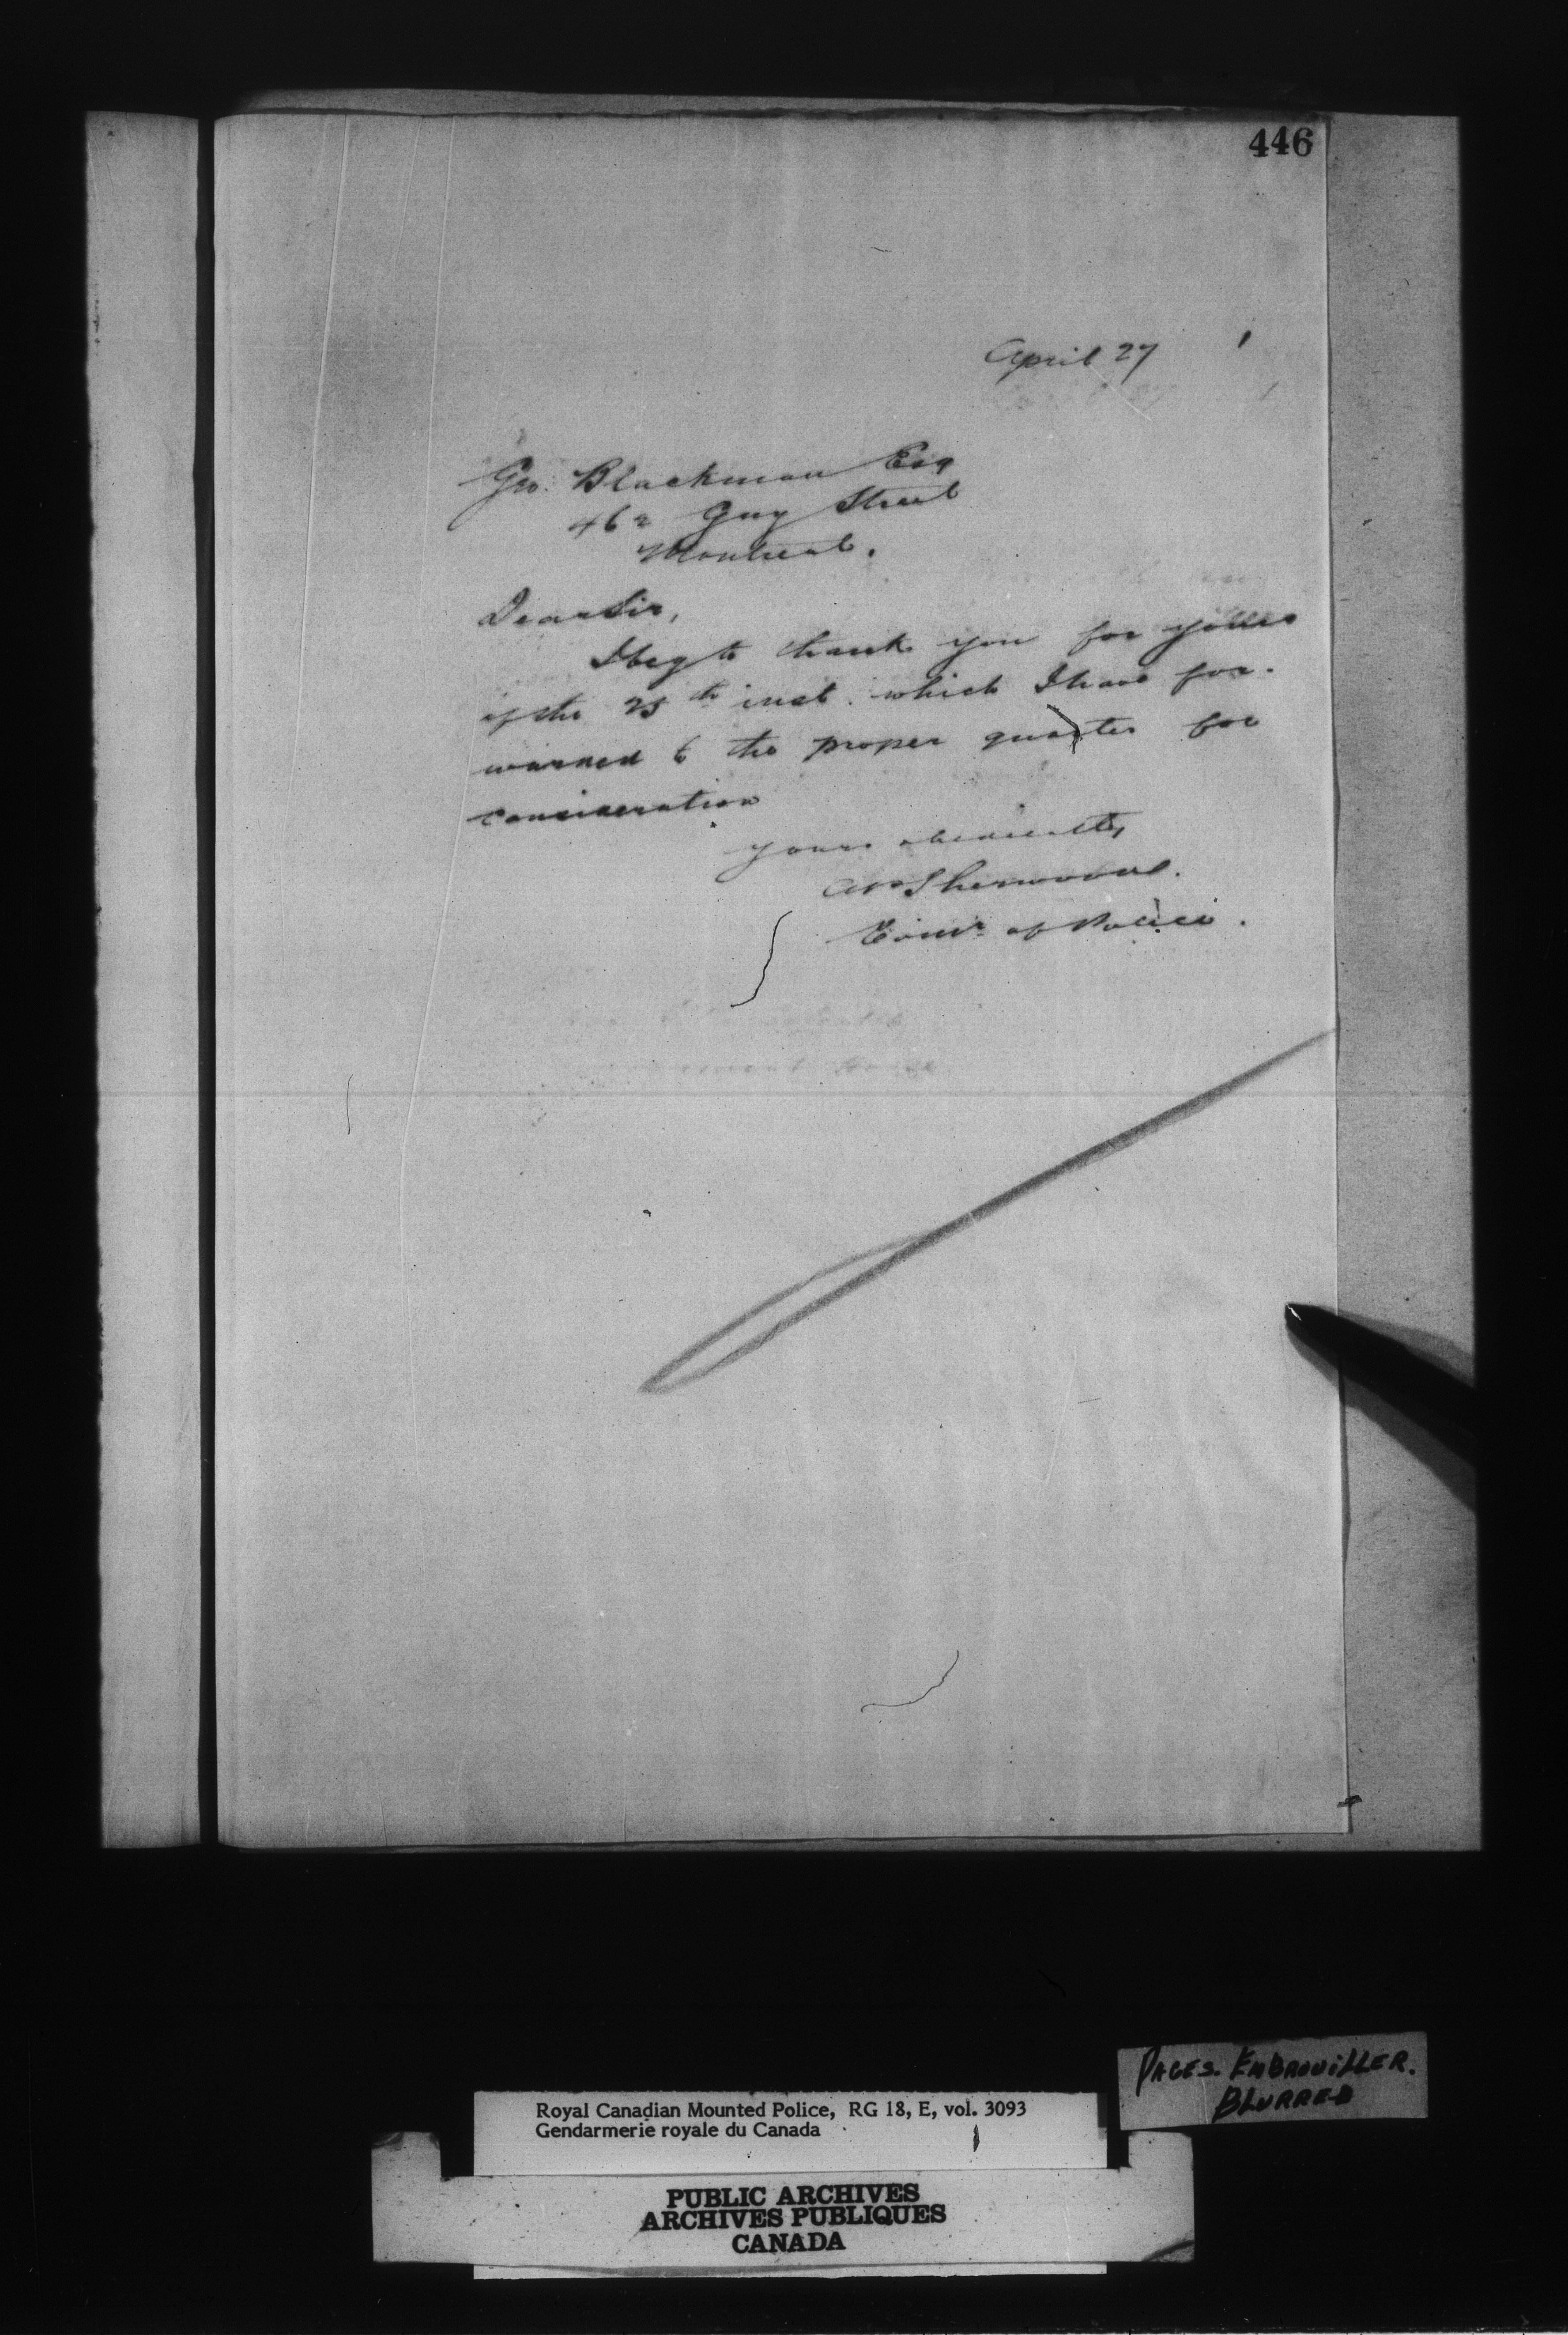 446
April 27
Geo. Blackman Esq
462 Guy Street
Montreal.
Dear Sir,
I beg to thank you for yours
of the 25th inst. which I have for-
warded to the proper quarter for
consideration
Yours obediently
AP Sherwood.
Comr of Police.
PAGES. EMBROUILLER.
BLURRED
Royal Canadian Mounted Police, RG 18, E, vol. 3093
Gendarmerie royale du Canada
PUBLIC ARCHIVES
ARCHIVES PUBLIQUES
CANADA